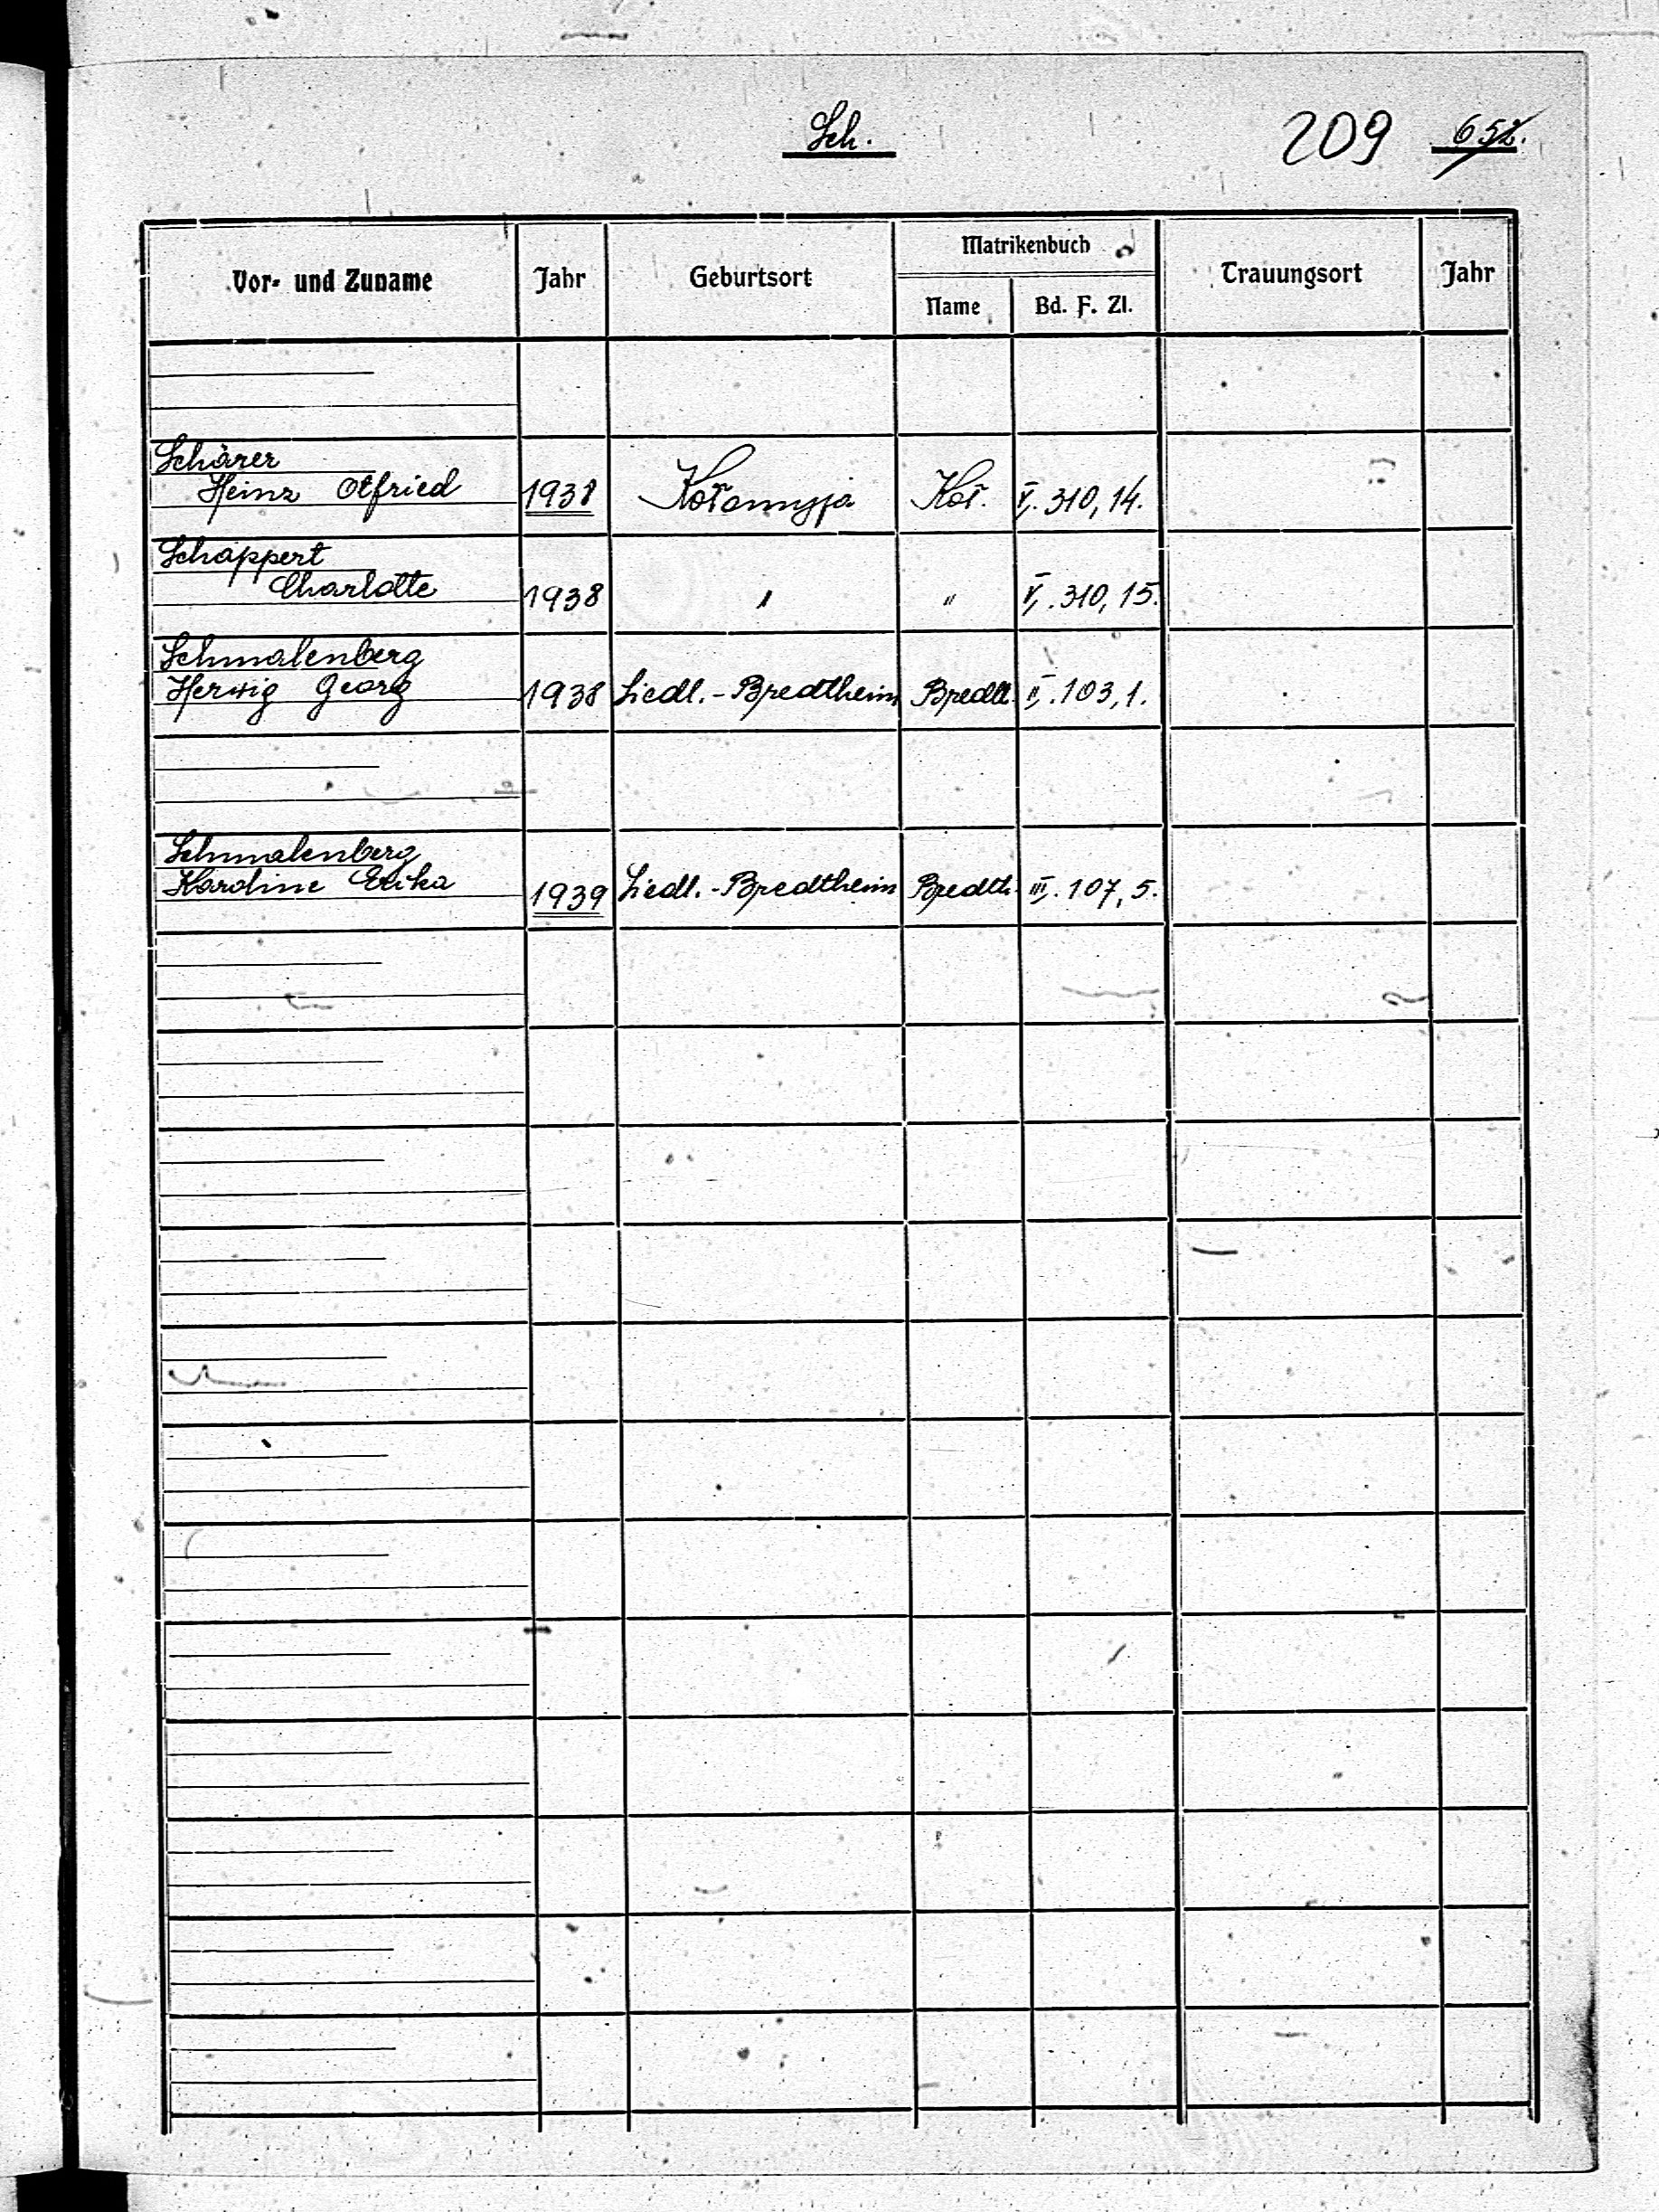 Sch.
209 652.
Vor- und Zuname Jahr Geburtsort Matrikenbuch Trauungsort Jahr
Name Bd. F. Zl.
Schärer
Heinz Otfried 1938 Kołomyja Koł. V. 310, 14.
Schappert
Charlotte 1938 " " V. 310, 15.
Schmalenberg
Herwig Georg 1938 Siedl.-Bredtheim Bredth. II. 103, 1.
Schmalenberg
Karoline Erika 1939 Siedl.-Bredtheim Bredth. III. 107, 5.